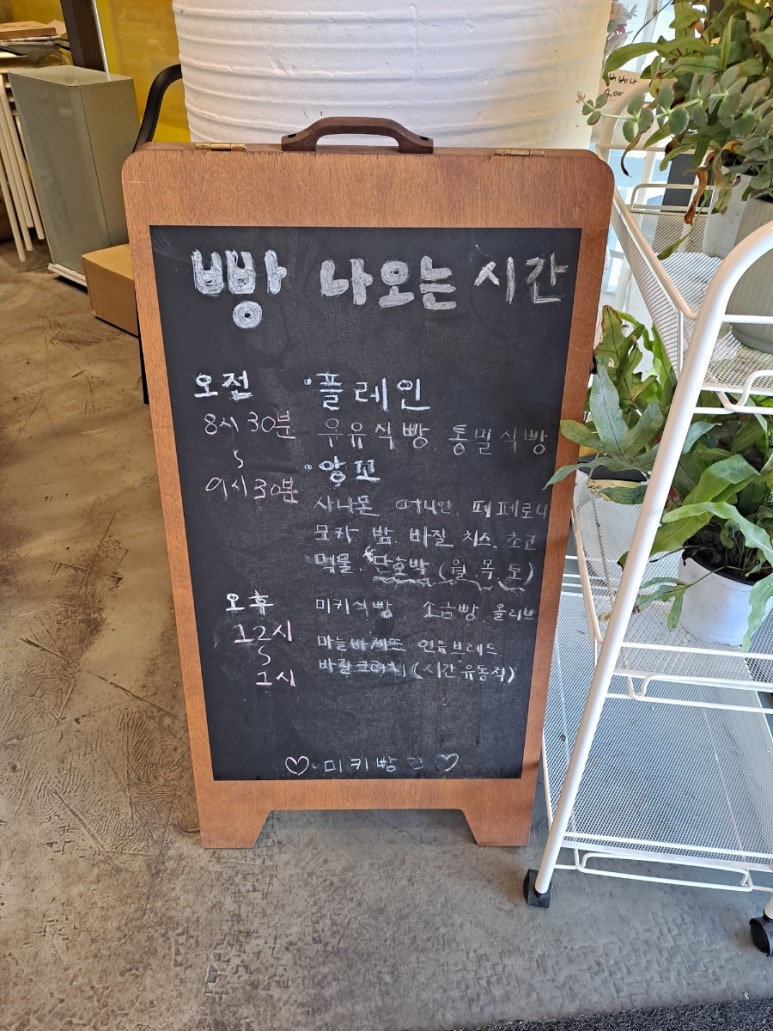 빵 나오는 시간
오전
8시 30분
~
9시 30분
·플레인
우유식빵, 통밀식빵
·앙꼬
시나몬, 어니언, 페페로니
모카, 밤, 바질, 치즈, 초코
·먹물, 단호박 (월, 목, 토)
오후
12시
~
1시
미키식빵 소금빵, 올리브
마늘바게뜨 연유브레드
(시간 유동적)
♡·미키빵 ♡